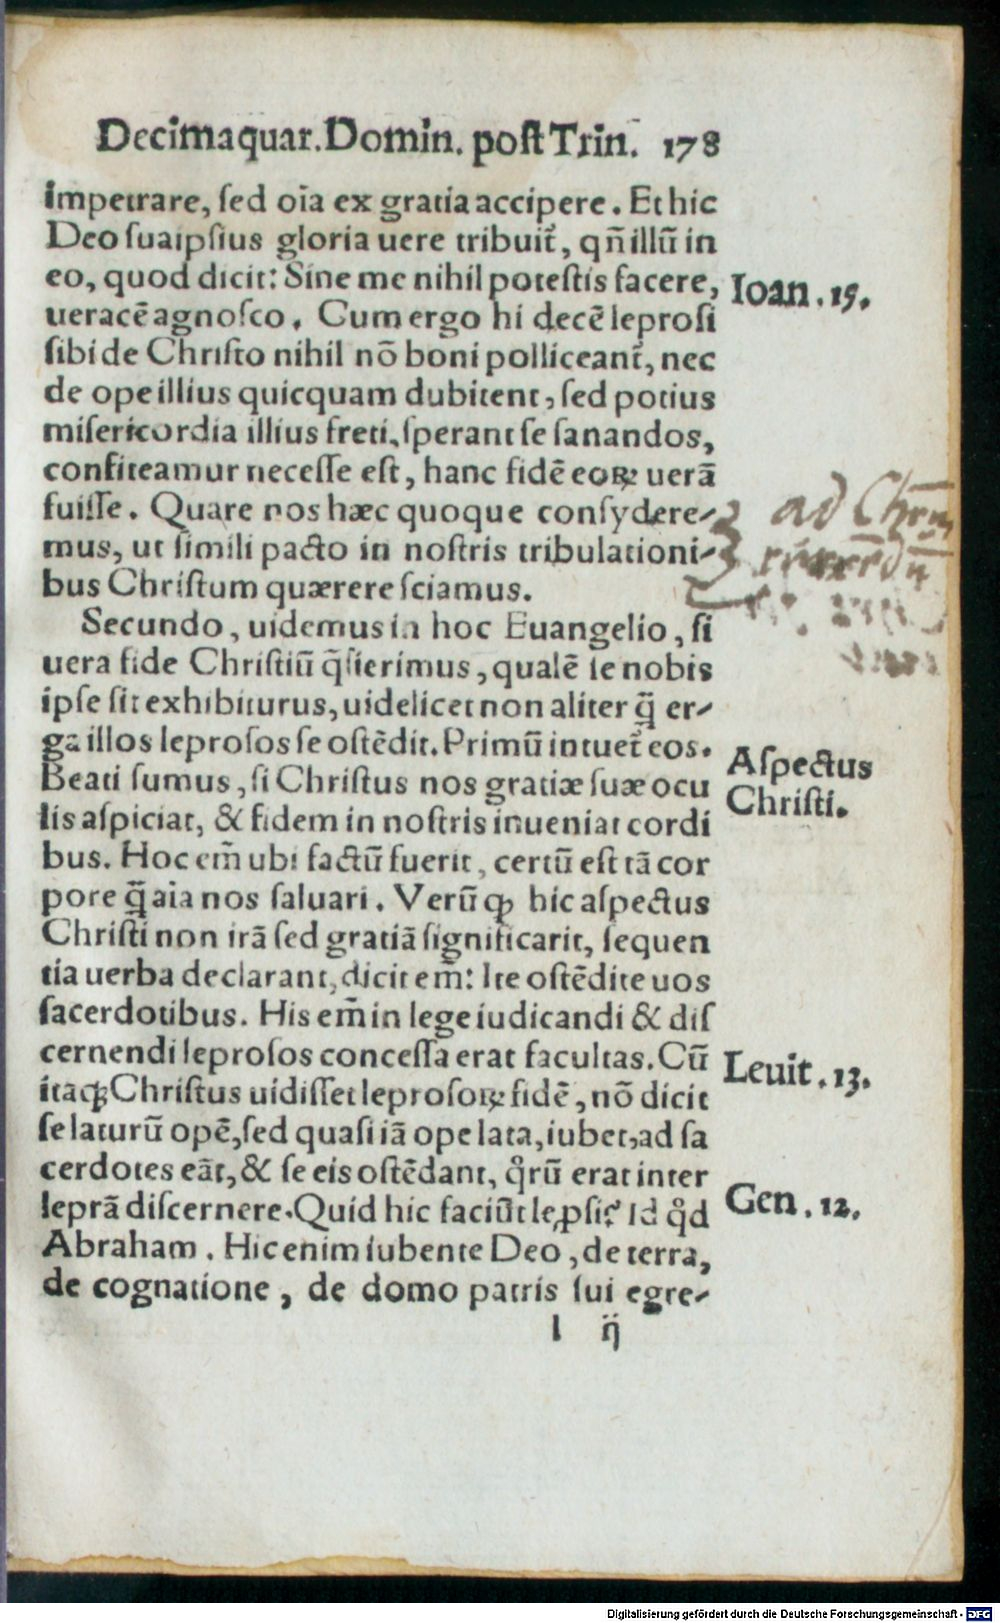 Decimaquar. Domin. post Trin. 178
impetrare, sed oīa ex gratia accipere. Et hic
Deo suaipsius gloria uere tribuit᷑, qñ illū in
eo, quod dicit: Sine me nihil potestis facere,
Ioan. 15.
ueracē agnosco. Cum ergo hi decē leprosi
sibi de Christo nihil nō boni polliceant᷑, nec
de ope illius quicquam dubitent, sed potius
misericordia illius freti, sperant se sanandos,
confiteamur necesse est, hanc fidē eoꝝ uerā
fuisse. Quare nos hæc quoque consydere-
mus, ut simili pacto in nostris tribulationi-
bus Christum quærere sciamus.
ad Chrm
Secundo, uidemus in hoc Euangelio, si
uera fide Christiū q̄sierimus, qualē se nobis
ipse sit exhibiturus, uidelicet non aliter q̄̃ er-
ga illos leprosos se ostēdit. Primū intuet᷑ eos.
Aspectus
Christi.
Beati sumus, si Christus nos gratiæ suæ ocu
lis aspiciat, & fidem in nostris inueniat cordi
bus. Hoc em̄ ubi factū fuerit, certū est tā cor
pore q̄̃ aīa nos saluari. Verū ꝙ hic aspectus
Christi non irā sed gratiā significarit, sequen
tia uerba declarant, dicit em̄: Ite ostēdite uos
sacerdotibus. His em̄ in lege iudicandi & dis
cernendi leprosos concessa erat facultas. Cū
Leuit. 13.
itaq̢ Christus uidisset leprosoꝝ fidē, nō dicit
se laturū opē, sed quasi iā ope lata, iubet, ad sa
cerdotes eāt, & se eis ostēdant, q̊rū erat inter
leprā discernere. Quid hic faciūt leꝓsi? Id q̊d
Gen. 12.
Abraham. Hic enim iubente Deo, de terra,
de cognatione, de domo patris sui egre-
l ij
Digitalisierung gefördert durch die Deutsche Forschungsgemeinschaft - DFG